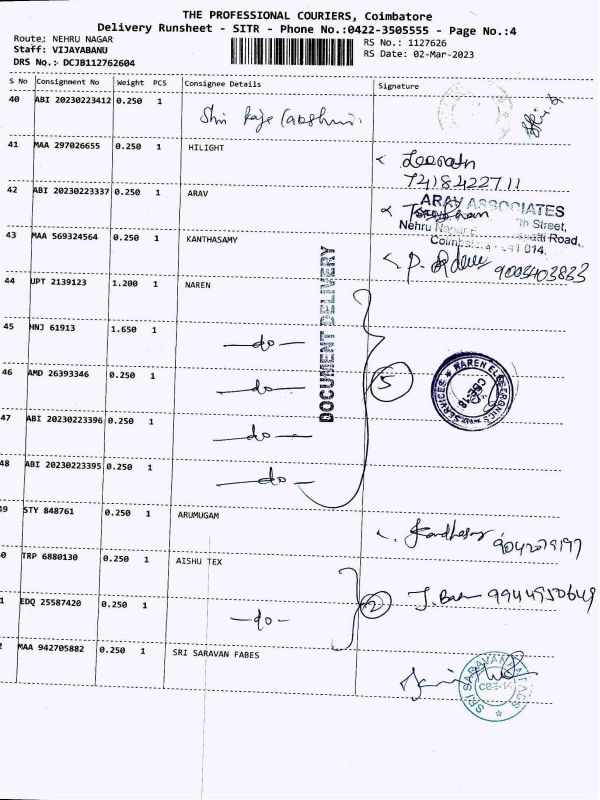 THE PROFESSIONAL COURIERS, Coimbatore
Delivery Runsheet - SITR - Phone No.:0422-3505555 - Page No.:4
Route: NEHRU NAGAR
RS No.: 1127626
Staff: VIJAYABANU
RS Date: 02-Mar-2023
DRS No.: DCJB112762604
S No Consignment No Weight PCS Consignee Details Signature
40 ABI 20230223412 0.250 1 Shri
41 MAA 297026655 0.250 1 HILIGHT
7418422711
42 ABI 20230223337 0.250 1 ARAV
ARAV ASSOCIATES
th Street,
Nehru Road,
Coimbatore - 641 014.
43 MAA 569324564 0.250 1 KANTHASAMY
P. 9003403833
DOCUMENT DELIVERY
44 UPT 2139123 1.200 1 NAREN
45 HNJ 61913 1.650 1 -do-
46 AMD 26393346 0.250 1 -do- 5
NAREN ELECTRONICS SERVICES
47 ABI 20230223396 0.250 1 -do-
48 ABI 20230223395 0.250 1 -do-
49 STY 848761 0.250 1 ARUMUGAM
0 TRP 6880130 0.250 1 AISHU TEX
1 EDQ 25587420 0.250 1 -do- 2 9944950649
2 MAA 942705882 0.250 1 SRI SARAVAN FABES